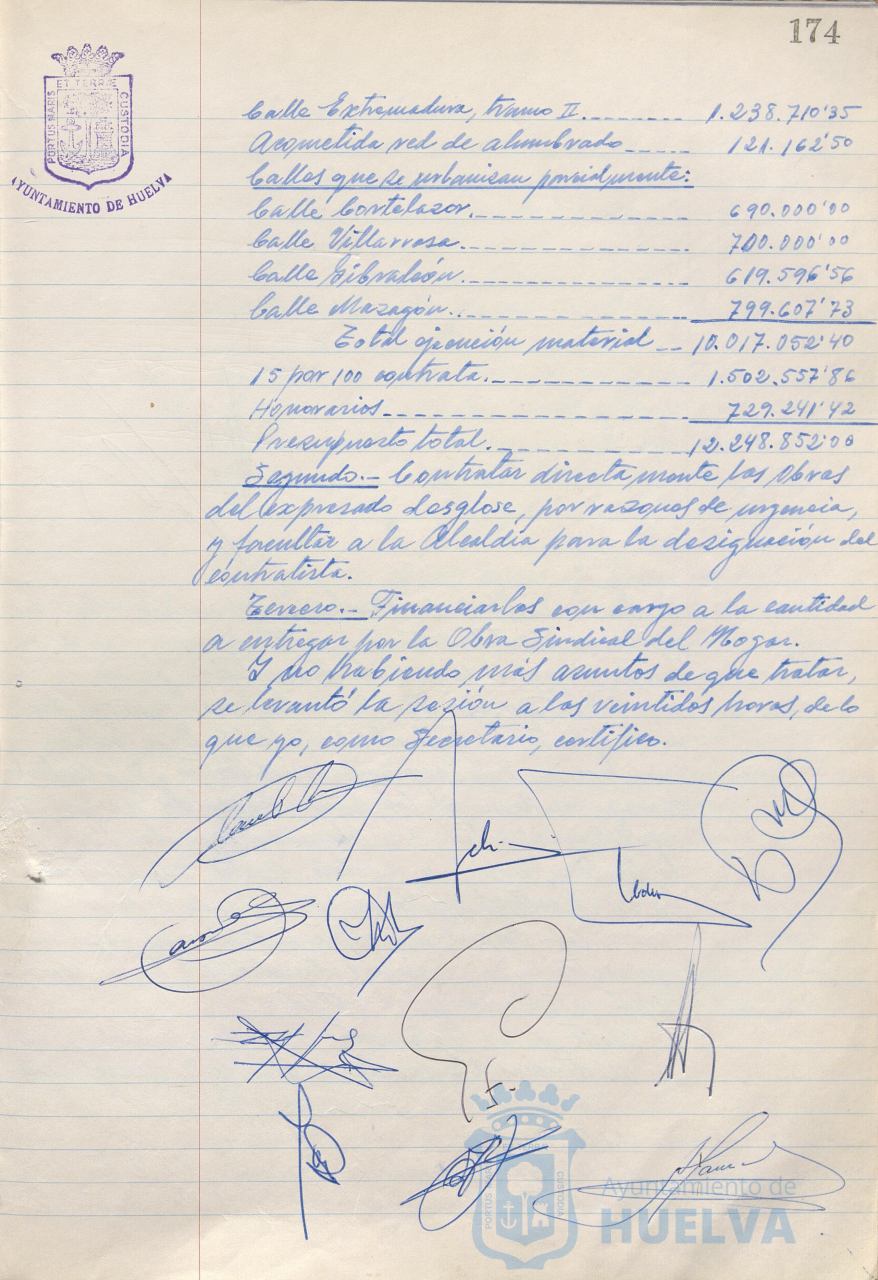 174
PORTUS MARIS ET TERRÆ CUSTODIA
AYUNTAMIENTO DE HUELVA
Calle Extremadura, tramo II.-------- 1.238.710'35
Acometida red de alumbrado----- 121.162'50
Calles que se urbanizan parcialmente:
Calle Cortelazor.---------------- 690.000'00
Calle Villarrasa.---------------- 700.000'00
Calle Gibraleón.---------------- 619.596'56
Calle Mazagón.---------------- 799.607'73
Total ejecución material --- 10.017.052'40
15 por 100 contrata.-------------- 1.502.557'86
Honorarios---------------------- 729.241'42
Presupuesto total.-------------- 12.248.852'00
Segundo.- Contratar directamente las obras
del expresado desglose, por razones de urgencia,
y facultar a la Alcaldía para la designación del
contratista.
Tercero.- Financiarlas con cargo a la cantidad
a entregar por la Obra Sindical del Hogar.
Y no habiendo más asuntos de que tratar,
se levantó la sesión a las veintidós horas, de lo
que yo, como Secretario, certifico.
Ayuntamiento de
HUELVA